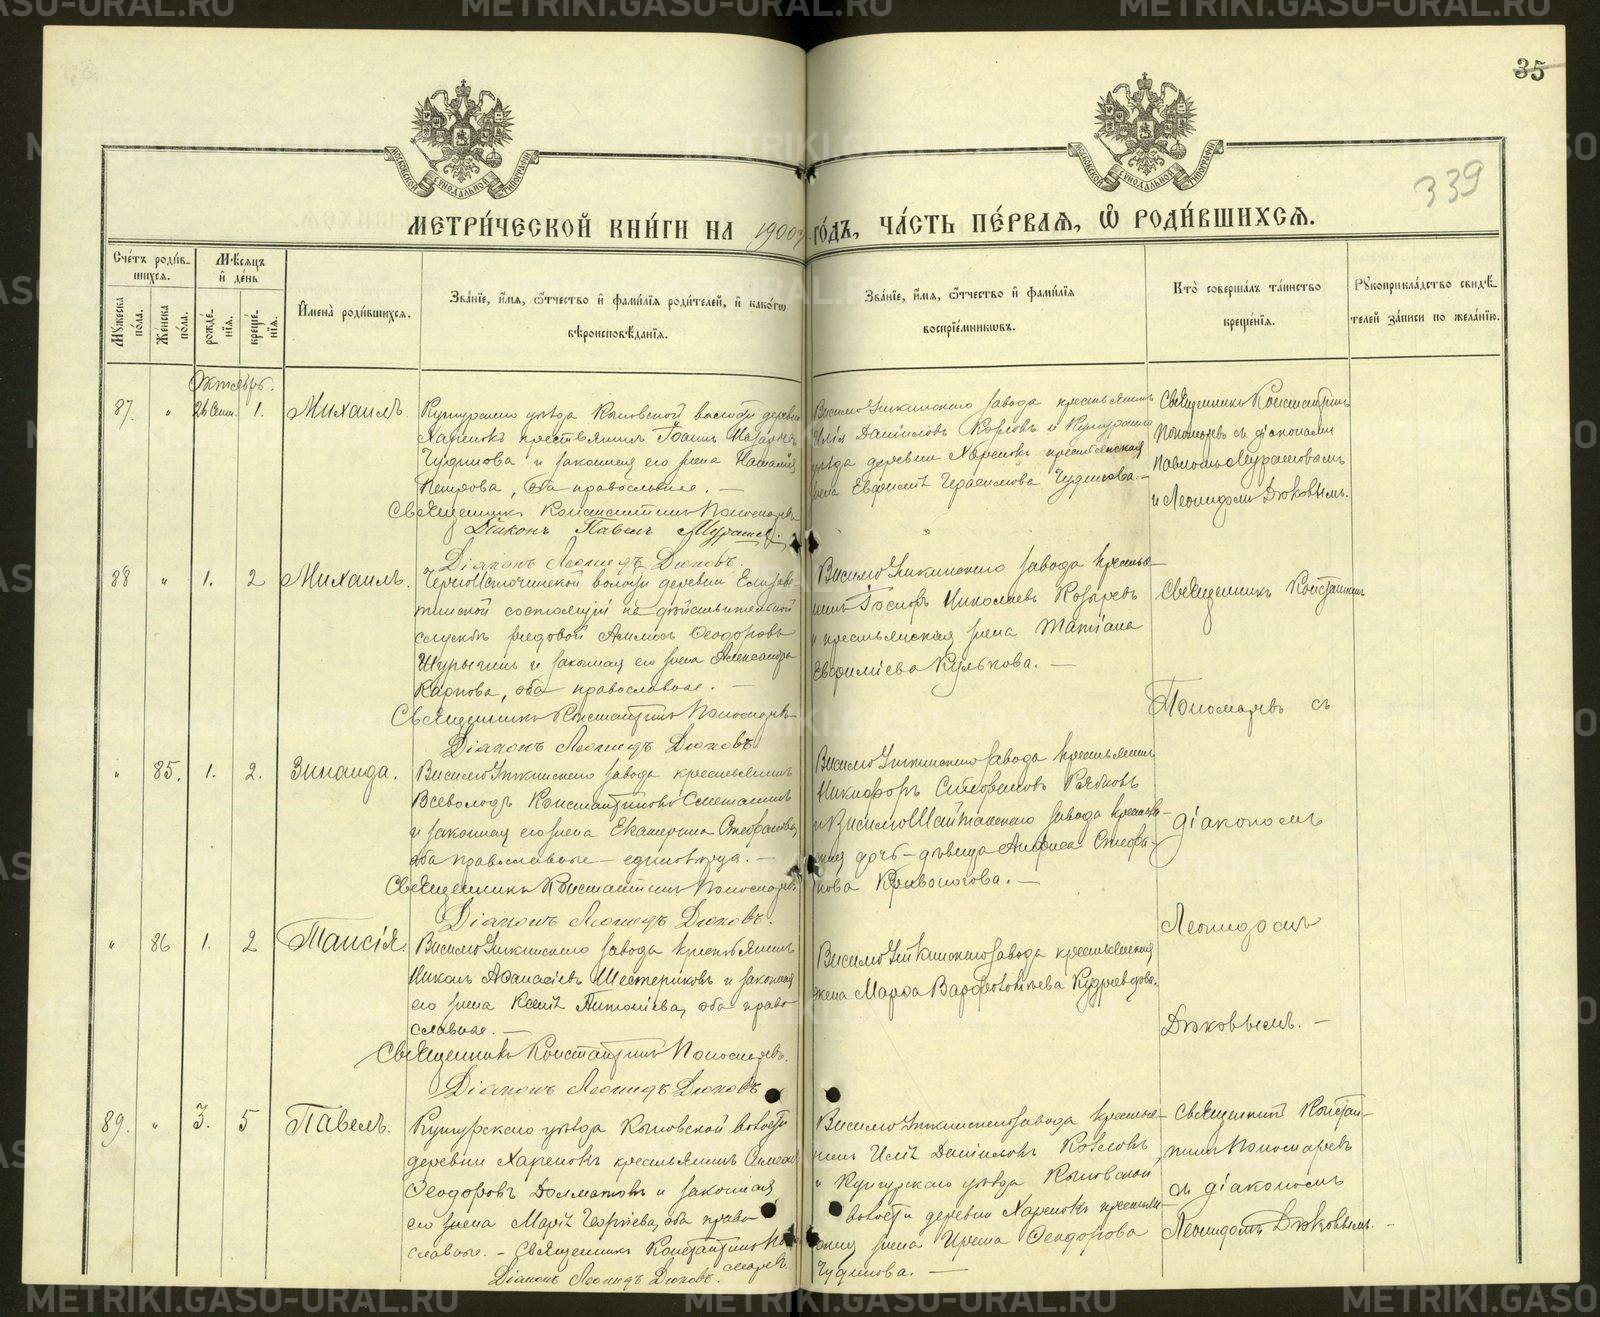 METRIKI.GASO-URAL.RU
35
339
МОСКОВСКОЙ СѴНОДАЛЬНОЙ ТИПОГРАФІИ
МОСКОВСКОЙ СѴНОДАЛЬНОЙ ТИПОГРАФІИ
МЕТРИ́ЧЕСКОЙ КНИ́ГИ НА 1900й ГО́ДЪ, ЧА́СТЬ ПЕ́РВАЯ, Ѽ РОДИ́ВШИХСЯ.
Сче́тъ роди́в-
шихся.
Мꙋжеска по́ла.
Же́нска по́ла.
Мѣ́сяцъ
и҆ де́нь
рожде́-
нїѧ.
креще́-
нїѧ.
И҆мена̀ роди́вшихся.
Зва́нїе, и҆́мя, ѻ҆́тчество и҆ фами́лїя роди́телей, и҆ како́гѡ
вѣроисповѣ́данїя.
Зва́нїе, и҆́мя, ѻ҆́тчество и҆ фами́лїя
воспрїе́мникѡвъ.
Кто̀ соверша́лъ та́инство
креще́нїя.
Рꙋкоприкла́дство свидѣ́-
телей за́писи по жела́нїю.
Октябрь.
87. " 26 Сент. 1. Михаилъ.
Кунгурскаго уѣзда Кыновской волости деревни
Харенокъ крестьянинъ Іоаннъ
Чудинова и законная его жена Наталія
Петрова, оба православные. —
Священникъ Константинъ Пономаревъ
Діаконъ Павелъ Мурашовъ.
Діаконъ Леонидъ Дюковъ.
Висимо Уткинскаго завода крестьянинъ
Илія Даніиловъ Козловъ и Кунгурскаго
уѣзда деревни Харенокъ крестьянская
жена Евфимія Герасимова Чудинова. —
Священникъ Константинъ
Пономаревъ съ діаконами
Павломъ Мурашовымъ
и Леонидомъ Дюковымъ.
88 " 1. 2 Михаилъ.
Черноисточинской волости деревни Елизаве-
тинской состоящій на дѣйствительной
службѣ рядовой Ѳеодоровъ
Шурыгинъ и законная его жена Александра
Карпова, оба православные. —
Священникъ Константинъ Пономаревъ
Діаконъ Леонидъ Дюковъ.
Висимо Уткинскаго завода крестья-
нинъ Николаевъ Козыревъ
и крестьянская жена Татіана
Евфиміева Кулькова. —
Священникъ Константинъ
Пономаревъ съ
" 85. 1. 2. Зинаида.
Висимо Уткинскаго завода крестьянинъ
Всеволодъ Константиновъ Сметанинъ
и законная его жена Екатерина Стефанова,
оба православные — единовѣрцы. —
Священникъ Константинъ Пономаревъ.
Діаконъ Леонидъ Дюковъ.
Висимо Уткинскаго завода крестьянинъ
Никифоръ Стефановъ
и Висимо Шайтанскаго завода крестьян-
ская дочь – дѣвица Анфиса Стефа-
нова Кривоногова. —
діакономъ
" 86 1. 2 Таисія.
Висимо Уткинскаго завода крестьянинъ
Аѳанасіевъ Шестериковъ и законная
его жена Ксенія Антоніева, оба право-
славные. —
Священникъ Константинъ Пономаревъ.
Діаконъ Леонидъ Дюковъ
Висимо Уткинскаго завода крестьянская
жена Марѳа Варѳоломеева Кудрявцова.
Леонидомъ
Дюковымъ. —
89. " 3. 5 Павелъ.
Кунгурскаго уѣзда Кыновской волости
деревни Харенокъ крестьянинъ Симеонъ
Ѳеодоровъ Долматовъ и законная
его жена Марія Георгіева, оба право-
славные. – Священникъ Константинъ По-
номаревъ.
Діаконъ Леонидъ Дюковъ.
Висимо Уткинскаго завода крестья-
нинъ Илія Даніиловъ Козловъ,
и Кунгурскаго уѣзда Кыновской
волости деревни Харенокъ крестьян-
ская жена Ѳеодорова
Чудинова. —
Священникъ Констан-
тинъ Пономаревъ
съ діакономъ
Леонидомъ Дюковымъ. —
METRIKI.GASO-URAL.RU